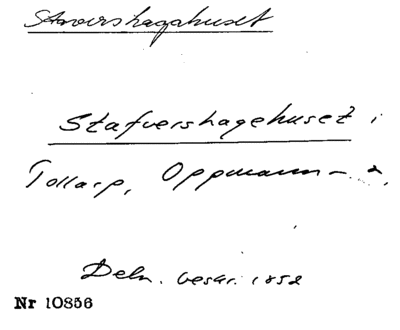 Stavershagehuset
Stafvershagehuset i
Tollarp, Oppmanna
Deln. beskr. 1852
Nr 10856